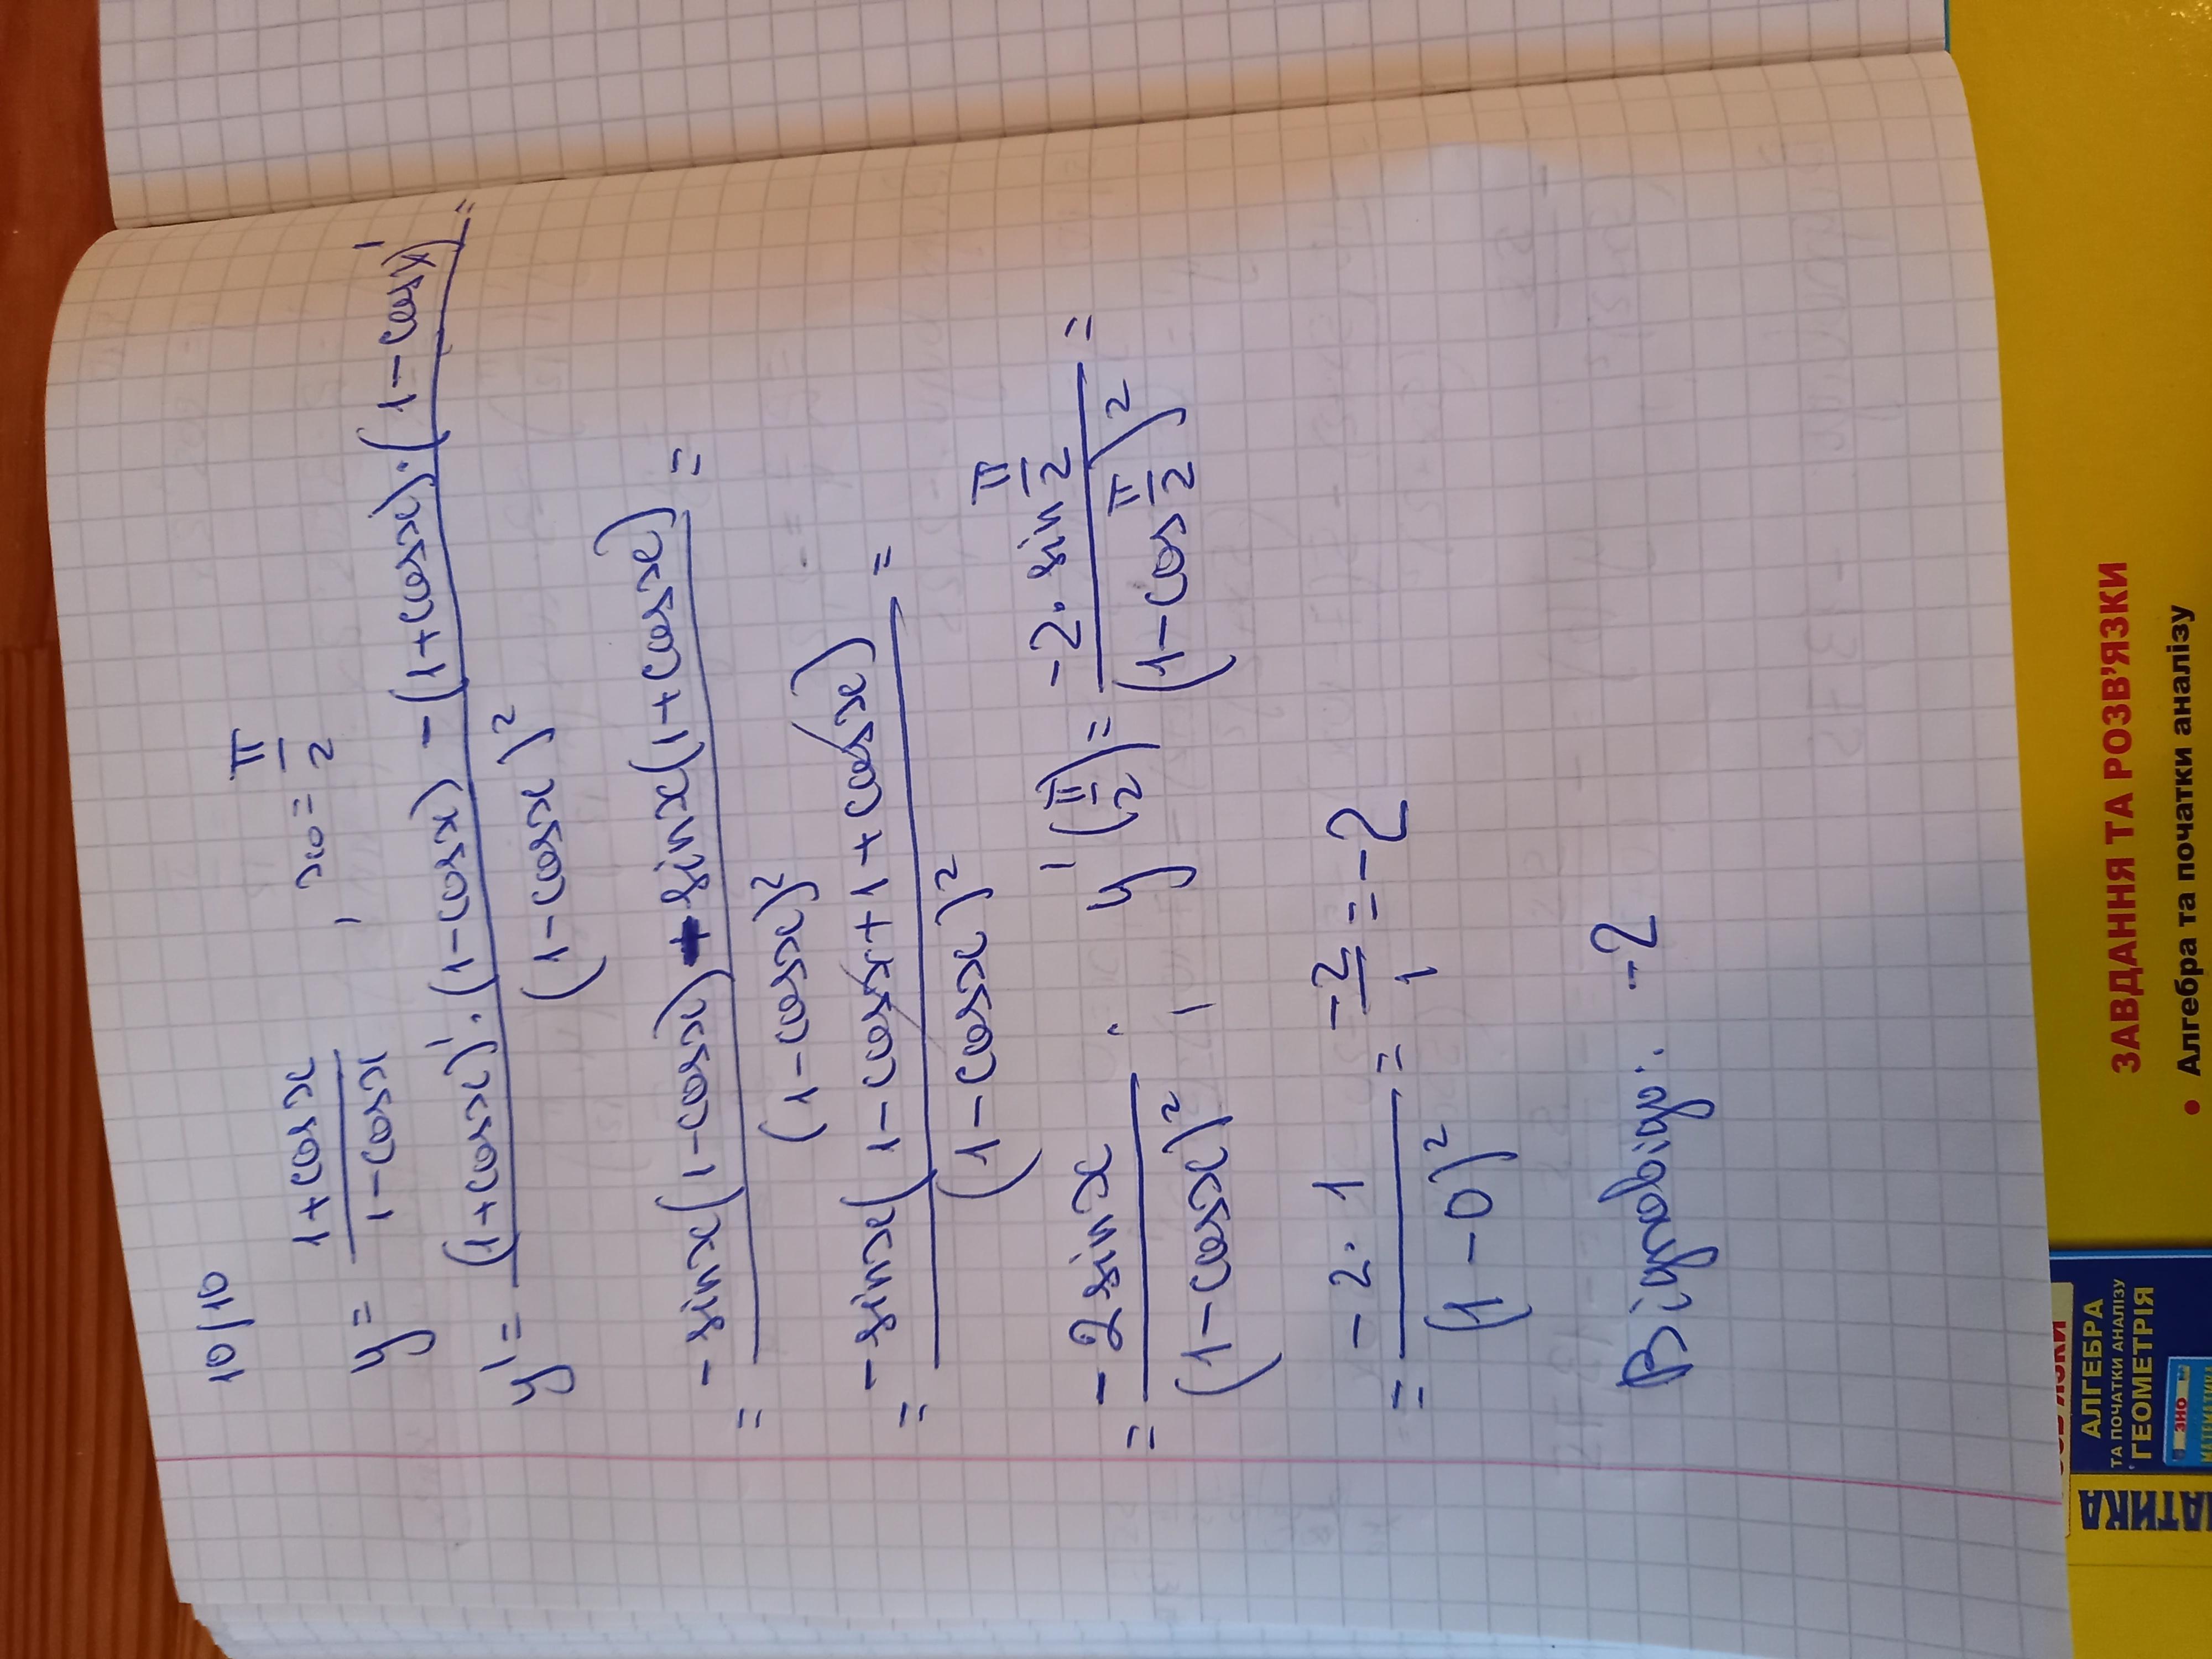 10/10
y = (1+cosx)/(1-cosx) , x₀ = π/2
y' = ((1+cosx)'·(1-cosx) - (1+cosx)·(1-cosx)')/(1-cosx)² =
= (-sinx(1-cosx) + sinx(1+cosx))/(1-cosx)² =
= (-sinx(1-cosx+1+cosx))/(1-cosx)² =
= (-2sinx)/(1-cosx)² ; y'(π/2) = (-2·sin π/2)/(1-cos π/2)² =
= (-2·1)/(1-0)² = -2/1 = -2
Відповідь: -2
ЗАВДАННЯ ТА РОЗВ'ЯЗКИ
• Алгебра та початки аналізу
АЛГЕБРА
ТА ПОЧАТКИ АНАЛІЗУ
ГЕОМЕТРІЯ
ЗНО